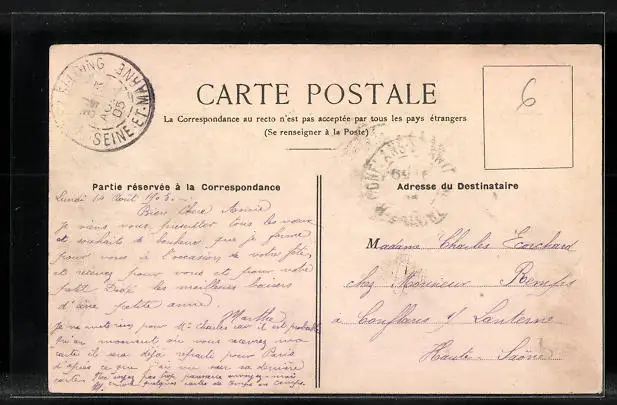 CARTE POSTALE
La Correspondance au recto n'est pas acceptée par tous les pays étrangers
(Se renseigner à la Poste)
6
SEINE-ET-MARNE
Partie réservée à la Correspondance
Lundi 14 Août 1905.
Bien Chère Amie
Je viens vous présenter tous les vœux
et souhaits de bonheur que je forme
pour vous à l'occasion de votre fête,
et recevez pour vous et pour votre
petit Bébé les meilleurs baisers
d'une petite amie.
Marthe
Je ne mets rien pour Mr Charles car il est probable
qu'au moment où vous recevrez ma
carte il sera déjà reparti pour Paris
d'après ce que j'ai vu sur sa dernière
carte.
quelques cartes de temps en temps.
Adresse du Destinataire
Madame Charles
chez Monsieur
à Conflans s/ Lanterne
Haute-Saône